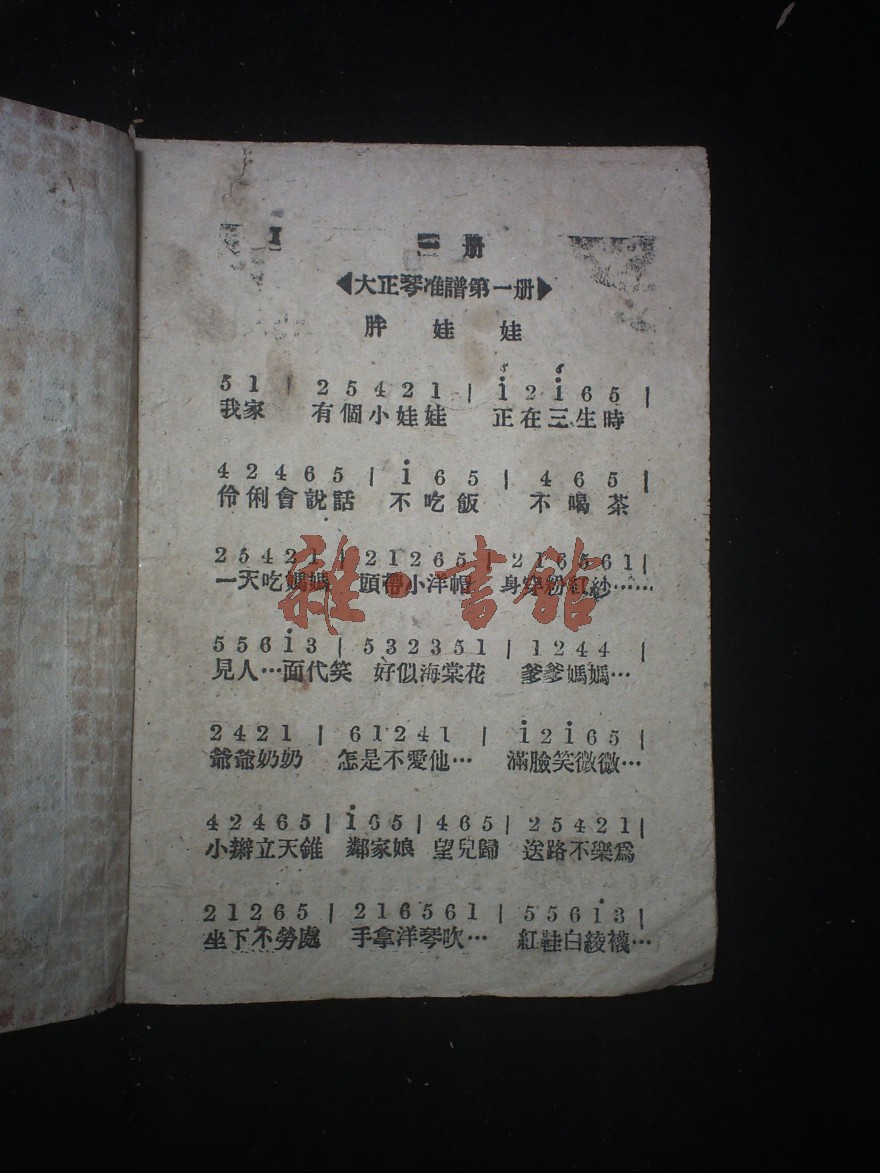 三 册
大正琴准譜第一册
胖 娃 娃
5 1 | 2 5 4 2 1 | i̇ 2 i̇ 6 5 |
我家 有個小娃娃 正在三生時
4 2 4 6 5 | i̇ 6 5 | 4 6 5 |
伶俐會說話 不吃飯 不喝茶
2 5 4 2 1 | 2 1 2 6 5 | 2 1 6 5 6 1 |
一天吃媽媽 頭帶小洋帽 身穿粉紅紗……
5 5 6 i̇ 3 | 5 3 2 3 5 1 | 1 2 4 4
見人…面代笑 好似海棠花 爹爹媽媽…
2 4 2 1 | 6 1 2 4 1 | i̇ 2 i̇ 6 5 |
爺爺奶奶 怎是不愛他… 滿臉笑微微…
4 2 4 6 5 | i̇ 6 5 | 4 6 5 | 2 5 4 2 1 |
小辮立天錐 鄰家娘 望兒歸 送路不樂爲
2 1 2 6 5 | 2 1 6 5 6 1 | 5 5 6 i̇ 3 |
坐下不勞處 手拿洋琴吹… 紅鞋白綾襪…
雜·書館